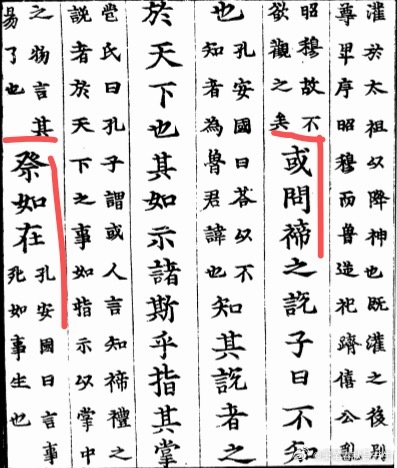 灌於太祖以降神也既灌之後別
尊卑序昭穆而魯逆祀躋僖公亂
昭穆故不
欲觀之矣
或問禘之說子曰不知
也
孔安國曰荅以不
知者為魯君諱也
知其說者之
於天下也其如示諸斯乎指其掌
苞氏曰孔子謂或人言知禘禮之
說者於天下之事如指示以掌中
之物言其
易了也
祭如在
孔安國曰言事
死如事生也